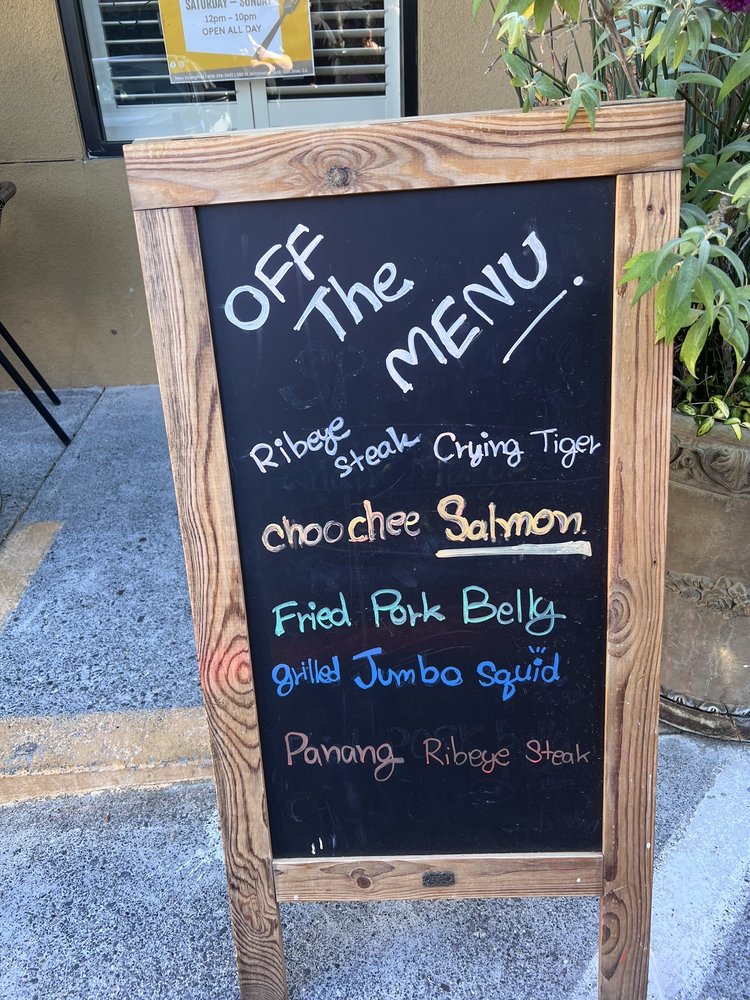 SATURDAY – SUNDAY
12pm – 10pm
OPEN ALL DAY
OFF
The
MENU.
Ribeye Steak Crying Tiger
choochee Salmon.
Fried Pork Belly
grilled Jumbo squid
Panang Ribeye Steak